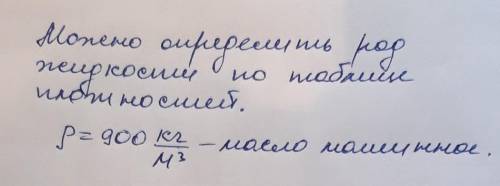 Можно определить род
жидкости по таблице
плотностей.
ρ = 900 кг/м³ – масло машинное.